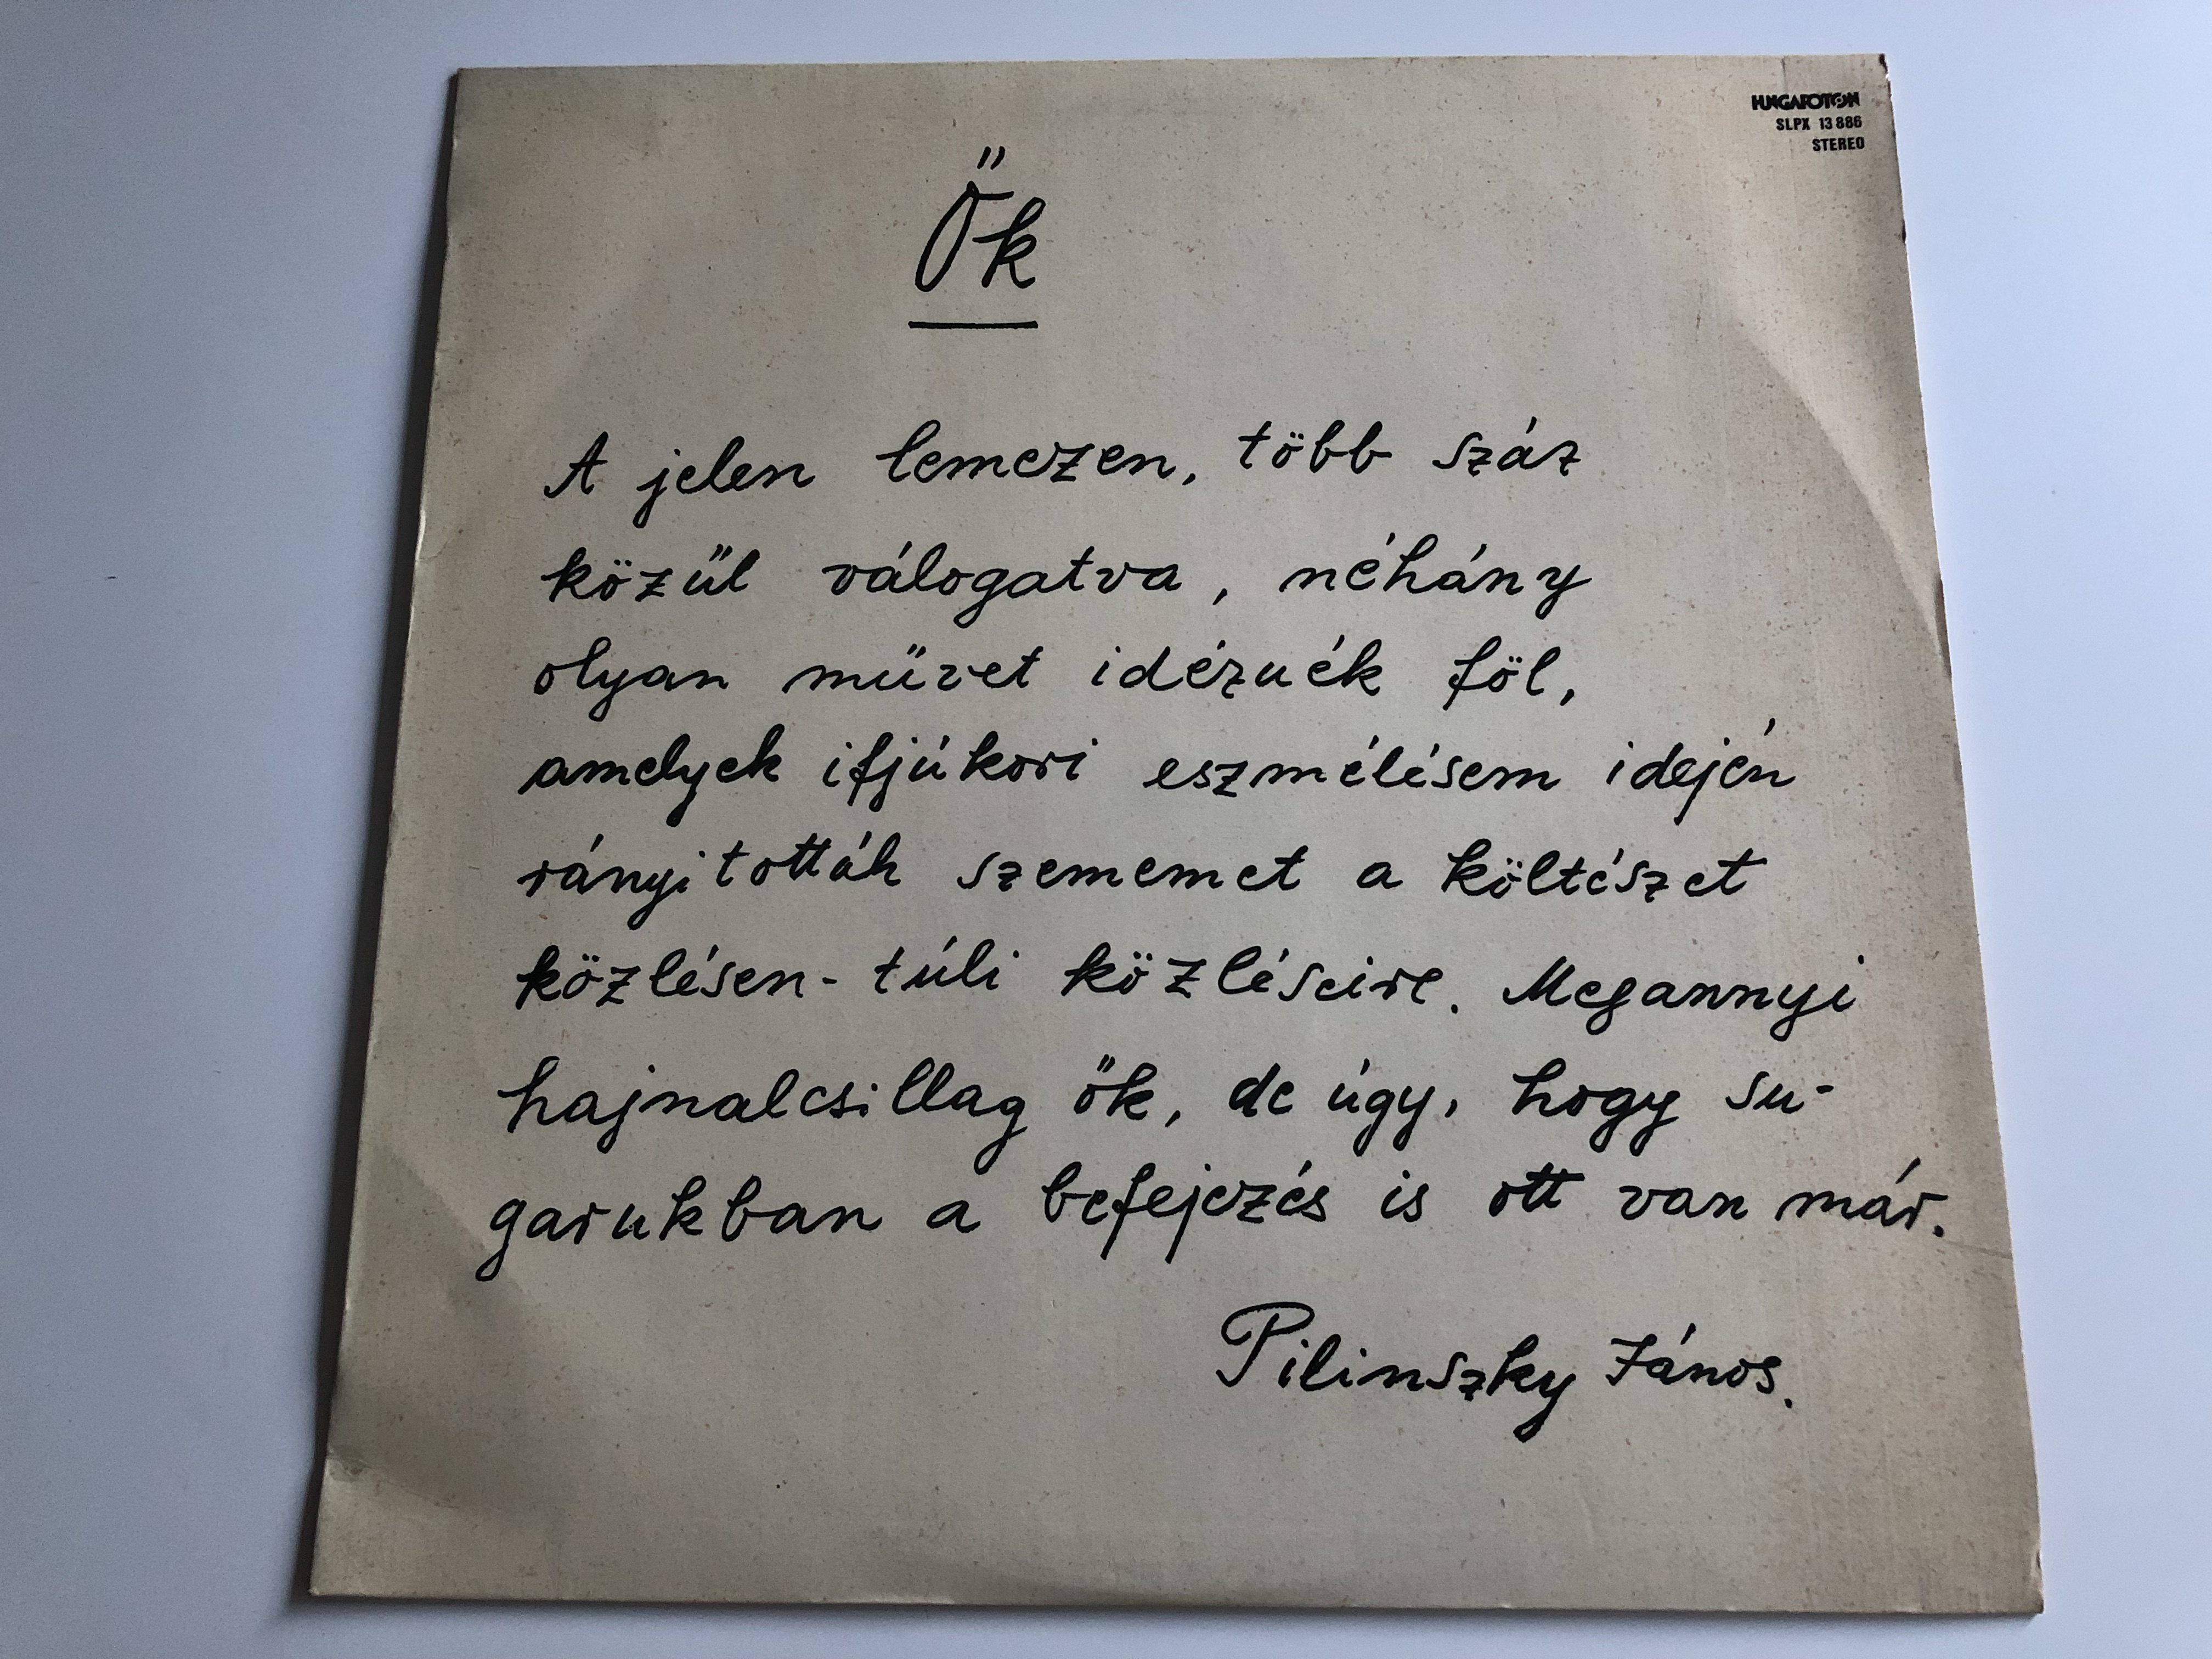 HUNGAROTON
SLPX 13886
STEREO
Ők
A jelen lemezen, több száz
közűl válogatva, néhány
olyan művet idéznék föl,
amelyek ifjúkori eszmélésem idején
rányitották szememet a költészet
közlésen-túli közléseire. Megannyi
hajnalcsillag ők, de úgy, hogy su-
garukban a befejezés is ott van már.
Pilinszky János.